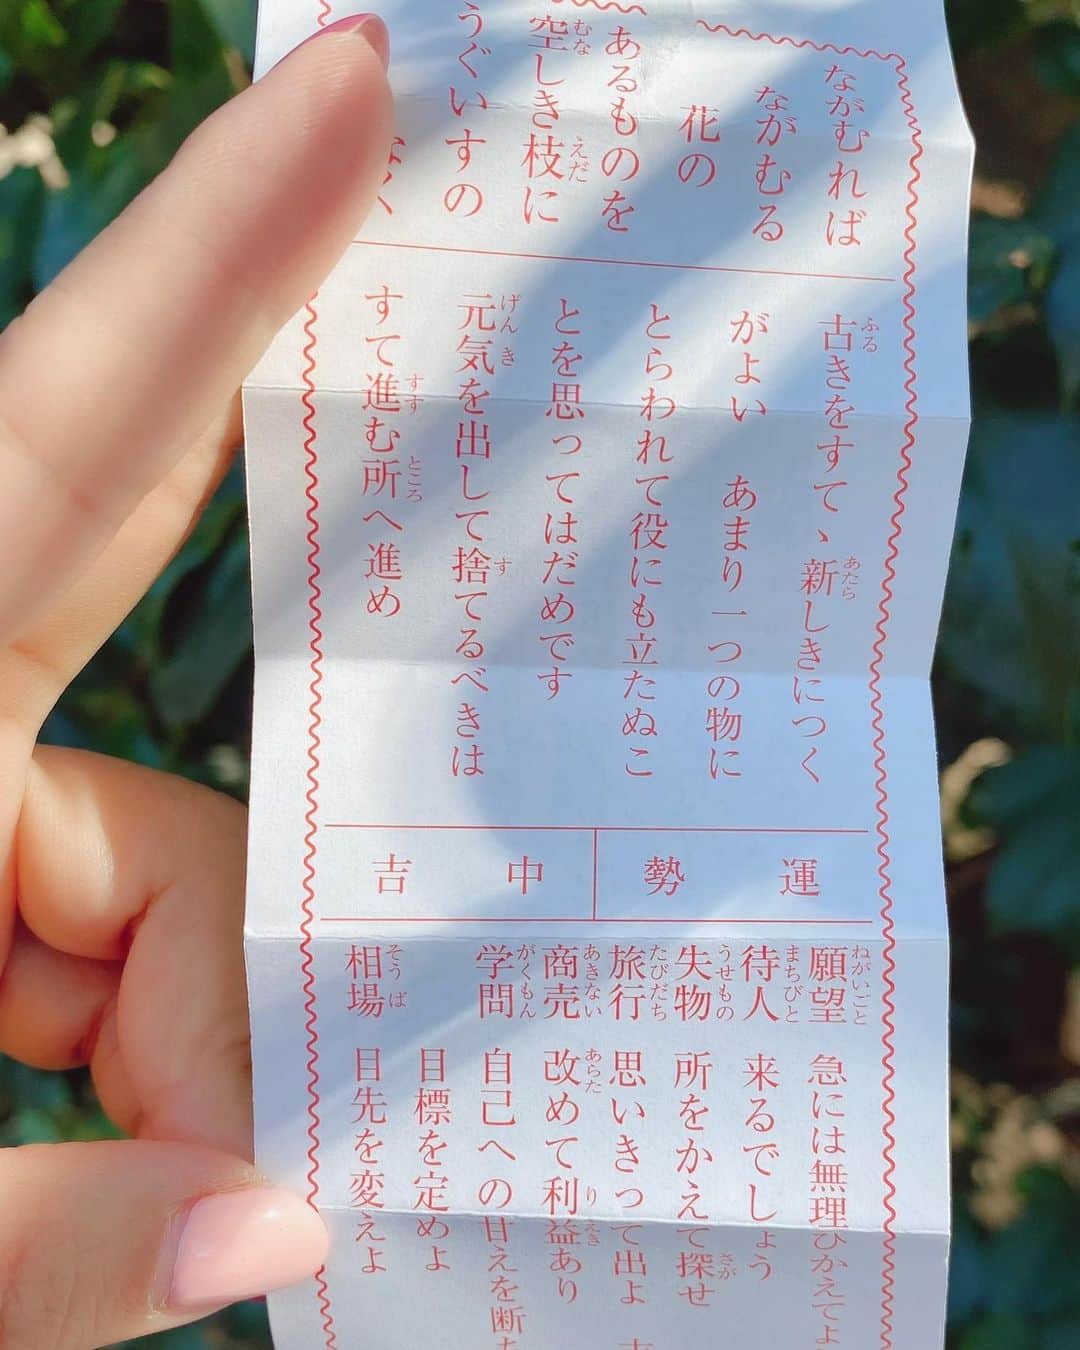 ながむれば
ながむる
花の
あるものを
空しき枝に
うぐいすの
なく
古きをすて、新しきにつく
がよい　あまり一つの物に
とらわれて役にも立たぬこ
とを思ってはだめです
元気を出して捨てるべきは
すて進む所へ進め
運勢　中吉
願望　急には無理ひかえてよ
待人　来るでしょう
失物　所をかえて探せ
旅行　思いきって出よ　吉
商売　改めて利益あり
学問　自己への甘えを断
目標を定めよ
相場　目先を変えよ